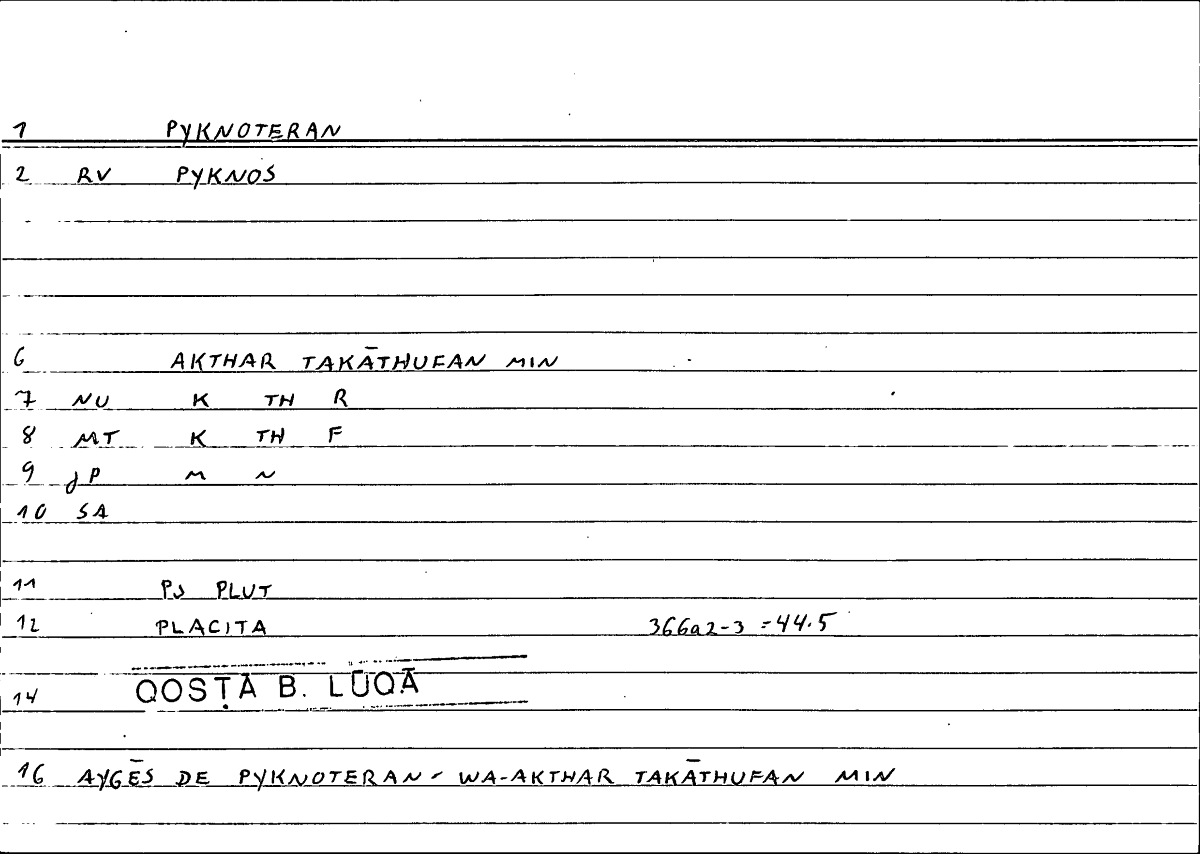 1 PYKNOTERAN
2 RV PYKNOS
6 AKTHAR TAKĀTHUFAN MIN
7 NU K TH R
8 MT K TH F
9 JP M N
10 SA
11 PS PLUT
12 PLACITA 366a2-3 =44.5
14 QOSṬĀ B. LŪQĀ
16 AYGĒS DE PYKNOTERAN - WA-AKTHAR TAKĀTHUFAN MIN